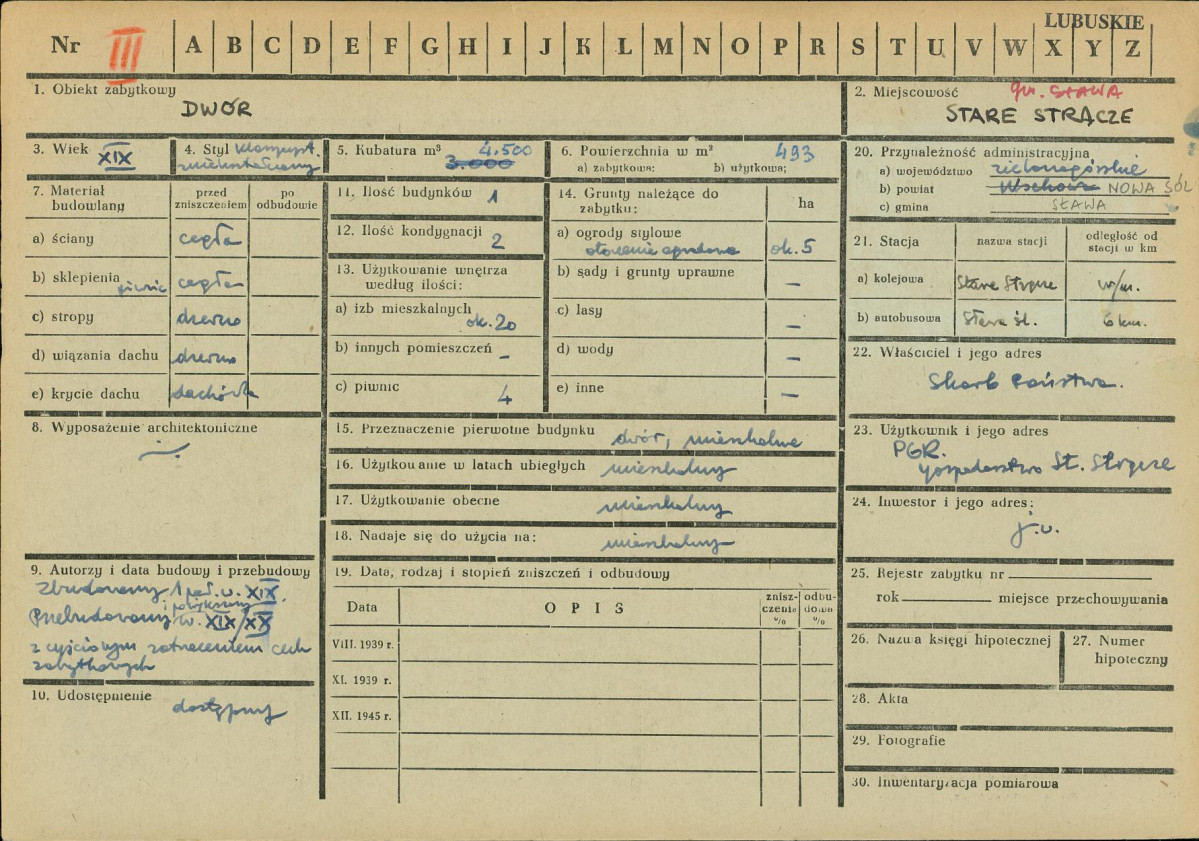 LUBUSKIE
Nr III A B C D E F G H I J K L M N O P R S T U V W X Y Z
1. Obiekt zabytkowy
DWÓR
2. Miejscowość gm. SŁAWA
STARE STRĄCZE
3. Wiek XIX
4. Styl klasycyst.
zniekształcony
5. Kubatura m³ 4.500
3.000
6. Powierzchnia w m² 493
a) zabytkowa: b) użytkowa;
7. Materiał budowlany
przed zniszczeniem
po odbudowie
a) ściany cegła
b) sklepienia piwnic cegła
c) stropy drewno
d) wiązania dachu drewno
e) krycie dachu dachówka
8. Wyposażenie architektoniczne
—
9. Autorzy i data budowy i przebudowy
Zbudowany 1 poł. w. XIX.
Przebudowany i powiększony w. XIX/XX
z częściowym zatraceniem cech
zabytkowych
10. Udostępnienie dostępny
11. Ilość budynków 1
12. Ilość kondygnacji 2
13. Użytkowanie wnętrza
według ilości:
a) izb mieszkalnych
ok. 20
b) innych pomieszczeń –
c) piwnic 4
14. Grunty należące do
zabytku: ha
a) ogrody stylowe
otoczenie ok. 5
b) sady i grunty uprawne –
c) lasy –
d) wody –
e) inne –
15. Przeznaczenie pierwotne budynku dwór, mieszkalne
16. Użytkowanie w latach ubiegłych mieszkalny
17. Użytkowanie obecne mieszkalny
18. Nadaje się do użycia na: mieszkalny
19. Data, rodzaj i stopień zniszczeń i odbudowy
Data OPIS znisz-czenia % odbu-dowa %
VIII. 1939 r.
XI. 1939 r.
XII. 1945 r.
20. Przynależność administracyjna
a) województwo zielonogórskie
b) powiat Wschowa NOWA SÓL
c) gmina SŁAWA
21. Stacja nazwa stacji odległość od stacji w km
a) kolejowa Stare Strącze w/m.
b) autobusowa Sława śl. 6 km.
22. Właściciel i jego adres
Skarb Państwa.
23. Użytkownik i jego adres
PGR.
gospodarstwo St. Strącze
24. Inwestor i jego adres:
j.w.
25. Rejestr zabytku nr
rok miejsce przechowywania
26. Nazwa księgi hipotecznej
27. Numer
hipoteczny
28. Akta
29. Fotografie
30. Inwentaryzacja pomiarowa